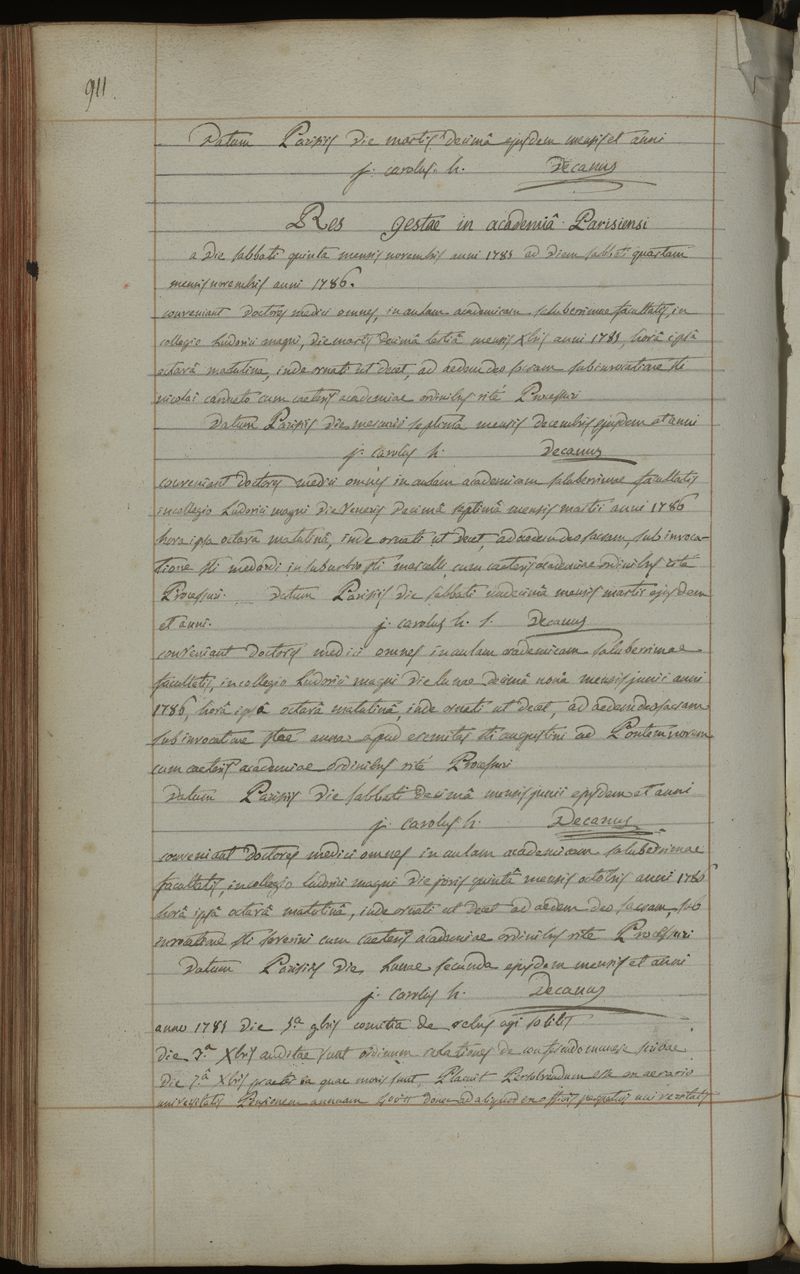 911.
Datum Parisiis die martis decimâ ejusdem mensis et anni
j. carolus h. Decanus
Res gestae in academiâ Parisiensi
a die sabbati quinta mensis novembris anni 1785 ad diem sabbati quartam
mensis novembris anni 1786.
conveniant doctores medici omnes, in aulam academicam saluberrimae facultatis, in
collegio Ludovici magni, die martis decimâ tertiâ mensis Xbris anni 1785, horâ ipsâ
octavâ matutinâ, inde ornati ut decet, ad aedem deo sacram sub invocatione sti
nicolai cum caeteris academiae ordinibus rité Processuri
Datum Parisiis die mercurii septimâ mensis decembris ejusdem et anni
j. carolus h. Decanus
conveniant doctores medici omnes in aulam academicam saluberrimae facultatis
in collegio Ludovici magni die Veneris decimâ septimâ mensis martii anni 1786
hora ipsa octava matutinâ, inde ornati ut decet, ad aedem deo sacram, sub invoca-
tione sti medardi in suburbio sti marcelli, cum caeteris academiae ordinibus rité
Processuri. Datum Parisiis die sabbati undecimâ mensis martis ejusdem
et anni. j. carolus h. s. Decanus
conveniant doctores medici omnes in aulam academicam saluberrimae
facultatis, in collegio Ludovici magni die lunae decimâ nonâ mensis junii anni
1786, horâ ipsâ octavâ matutinâ, inde ornati ut decet, ad aedem deo sacram
sub invocatione stae annae apud eremitas sti augustini ad Pontem novem
cum caeteris academiae ordinibus rité Processuri
Datum Parisiis die sabbati decimâ mensis junii ejusdem et anni
j. carolus h. Decanus
conveniant doctores medici omnes in aulam academicam saluberrimae
facultatis, in collegio Ludovici magni die jovis quintâ mensis octobris anni 1786
horâ ipsâ octavâ matutinâ, inde ornati ut decet ad aedem deo sacram, sub
invocatione sti severini cum caeteris academiae ordinibus rite Processuri
Datum Parisiis die Lunae secunda ejusdem mensis et anni
j. carolus h. Decanus
anno 1785 die 5.a 9bris comitia de rebus agi solitis
die 3.a Xbris auditae sunt ordinum relationes de
die 7.a Xbris praeter ea quae moris sunt, Placuit Persolvendam esse ex aerario
universitatis Pensionem annuam donec ad aliquod ex officiis universitatis